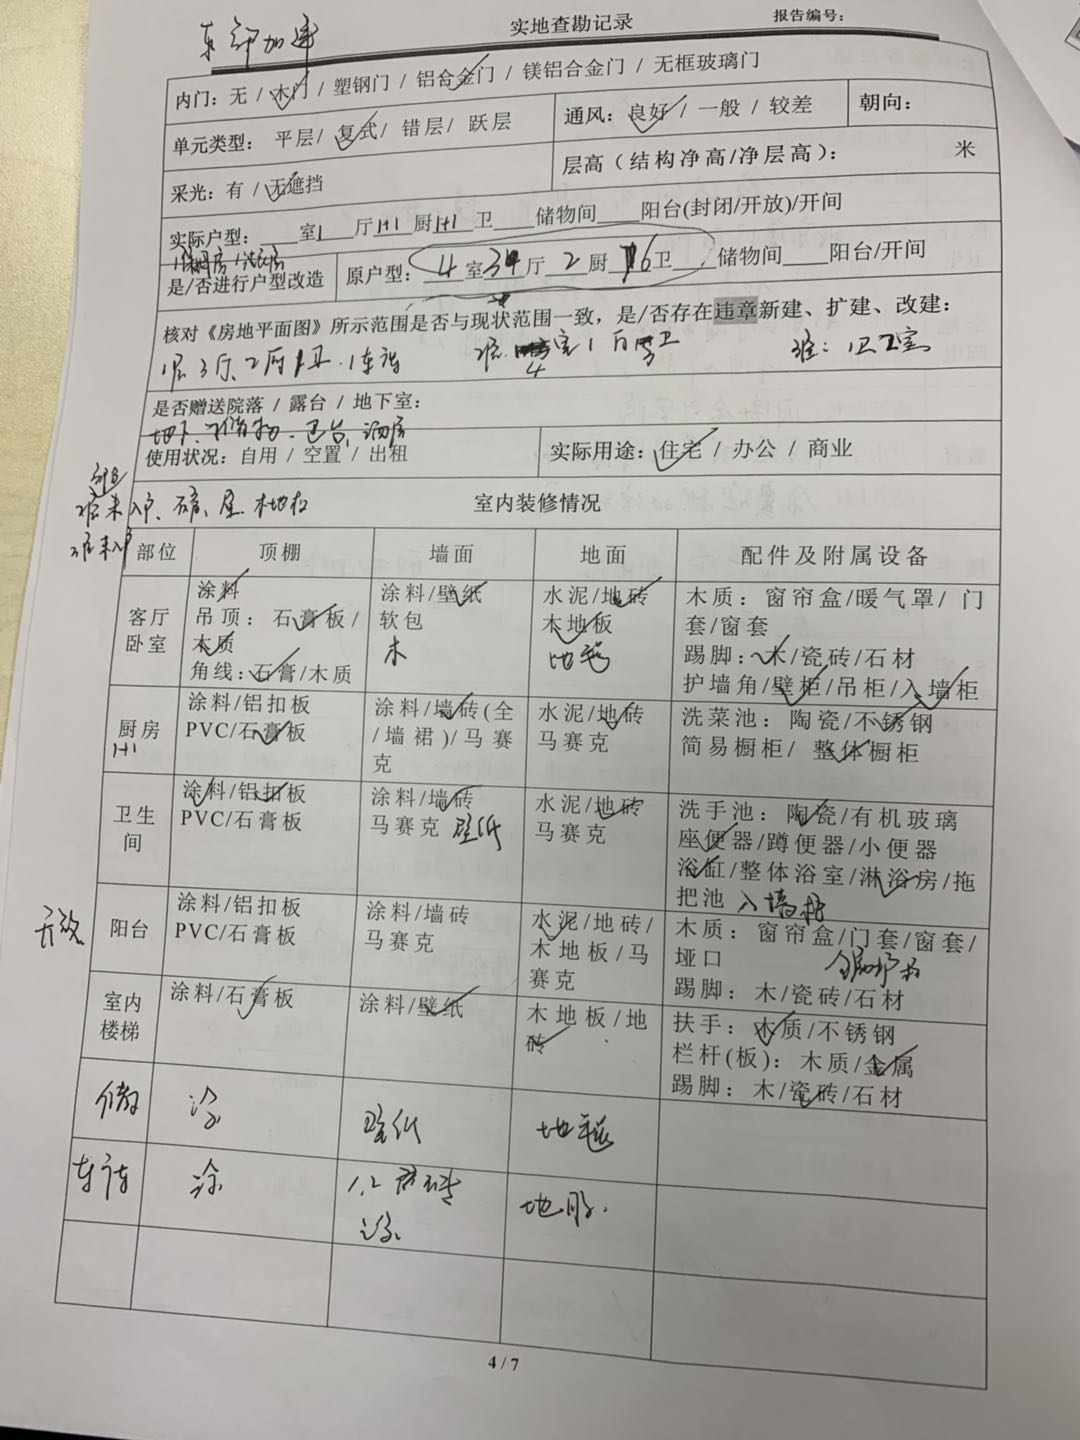 实地查勘记录
报告编号：
内门：无 / 木门 / 塑钢门 / 铝合金门 / 镁铝合金门 / 无框玻璃门
单元类型：平层/ 复式/ 错层/ 跃层
通风：良好 / 一般 / 较差
朝向：
采光：有 / 无遮挡
层高（结构净高/净层高）：
米
实际户型：
室1
厅1+1
厨1+1
卫
储物间
阳台(封闭/开放)/开间
是/否进行户型改造
原户型：
4
室
厅
2
厨
6
卫
储物间
阳台/开间
核对《房地平面图》所示范围是否与现状范围一致，是/否存在违章新建、扩建、改建：
是否赠送院落 / 露台 / 地下室：
使用状况：自用 / 空置 / 出租
实际用途：住宅 / 办公 / 商业
木地板
室内装修情况
部位
顶棚
墙面
地面
配件及附属设备
客厅
卧室
涂料
吊顶：石膏板/
木质
角线：石膏/木质
涂料/壁纸
软包
木
水泥/地砖
木地板
地毯
木质：窗帘盒/暖气罩/ 门
套/窗套
踢脚：木/瓷砖/石材
护墙角/壁柜/吊柜/入墙柜
厨房
1+1
涂料/铝扣板
PVC/石膏板
涂料/墙砖(全
/墙裙)/马赛
克
水泥/地砖
马赛克
洗菜池：陶瓷/不锈钢
简易橱柜/ 整体橱柜
卫生
间
涂料/铝扣板
PVC/石膏板
涂料/墙砖
马赛克 壁纸
水泥/地砖
马赛克
洗手池：陶瓷/有机玻璃
座便器/蹲便器/小便器
浴缸/整体浴室/淋浴房/拖
把池 入墙柜
开放
阳台
涂料/铝扣板
PVC/石膏板
涂料/墙砖
马赛克
水泥/地砖/
木地板/马
赛克
木质：窗帘盒/门套/窗套/
垭口
踢脚：木/瓷砖/石材
室内
楼梯
涂料/石膏板
涂料/壁纸
木地板/地
砖
扶手：木质/不锈钢
栏杆(板)：木质/金属
踢脚：木/瓷砖/石材
涂
壁纸
地毯
涂
涂
4 / 7